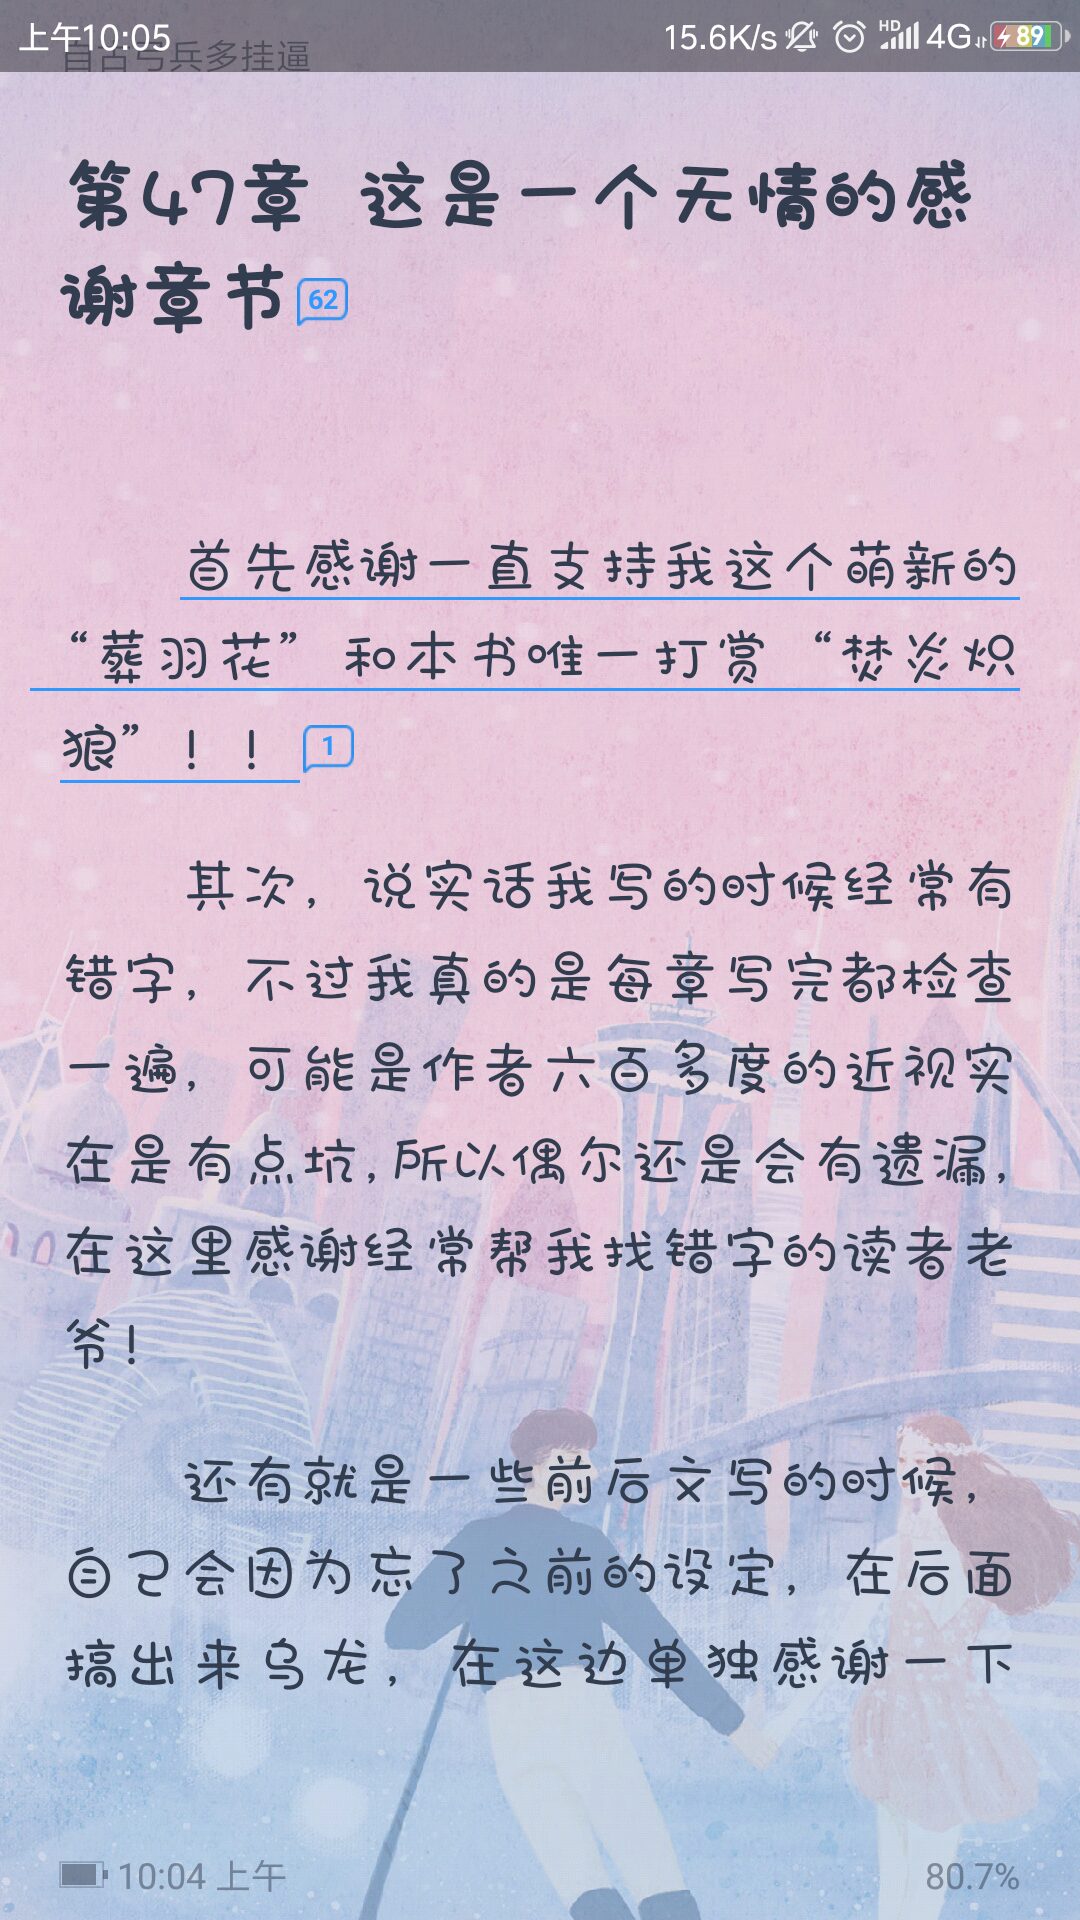 上午10:05
15.6K/s HD 4G 89
自古弓兵多挂逼
第47章 这是一个无情的感
谢章节 62
首先感谢一直支持我这个萌新的
“葬羽花”和本书唯一打赏“焚炎炽
狼”！！ 1
其次，说实话我写的时候经常有
错字，不过我真的是每章写完都检查
一遍，可能是作者六百多度的近视实
在是有点坑,所以偶尔还是会有遗漏，
在这里感谢经常帮我找错字的读者老
爷！
还有就是一些前后文写的时候，
自己会因为忘了之前的设定，在后面
搞出来乌龙，在这边单独感谢一下
10:04 上午
80.7%